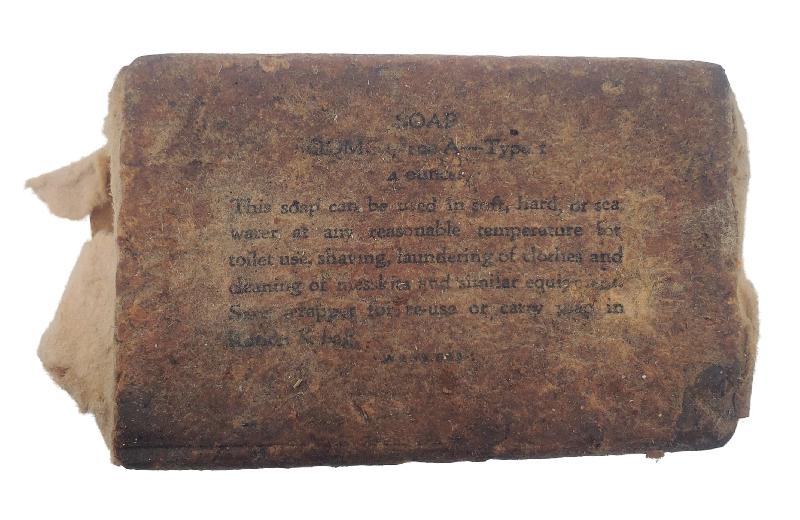 SOAP
A—Type I
4 ounces
This soap can be used in soft, hard, or sea
water at any reasonable temperature for
toilet use, shaving, laundering of clothes and
cleaning of messkits and similar equipment.
Save wrapper for re-use or carry soap in
Ration K bag.